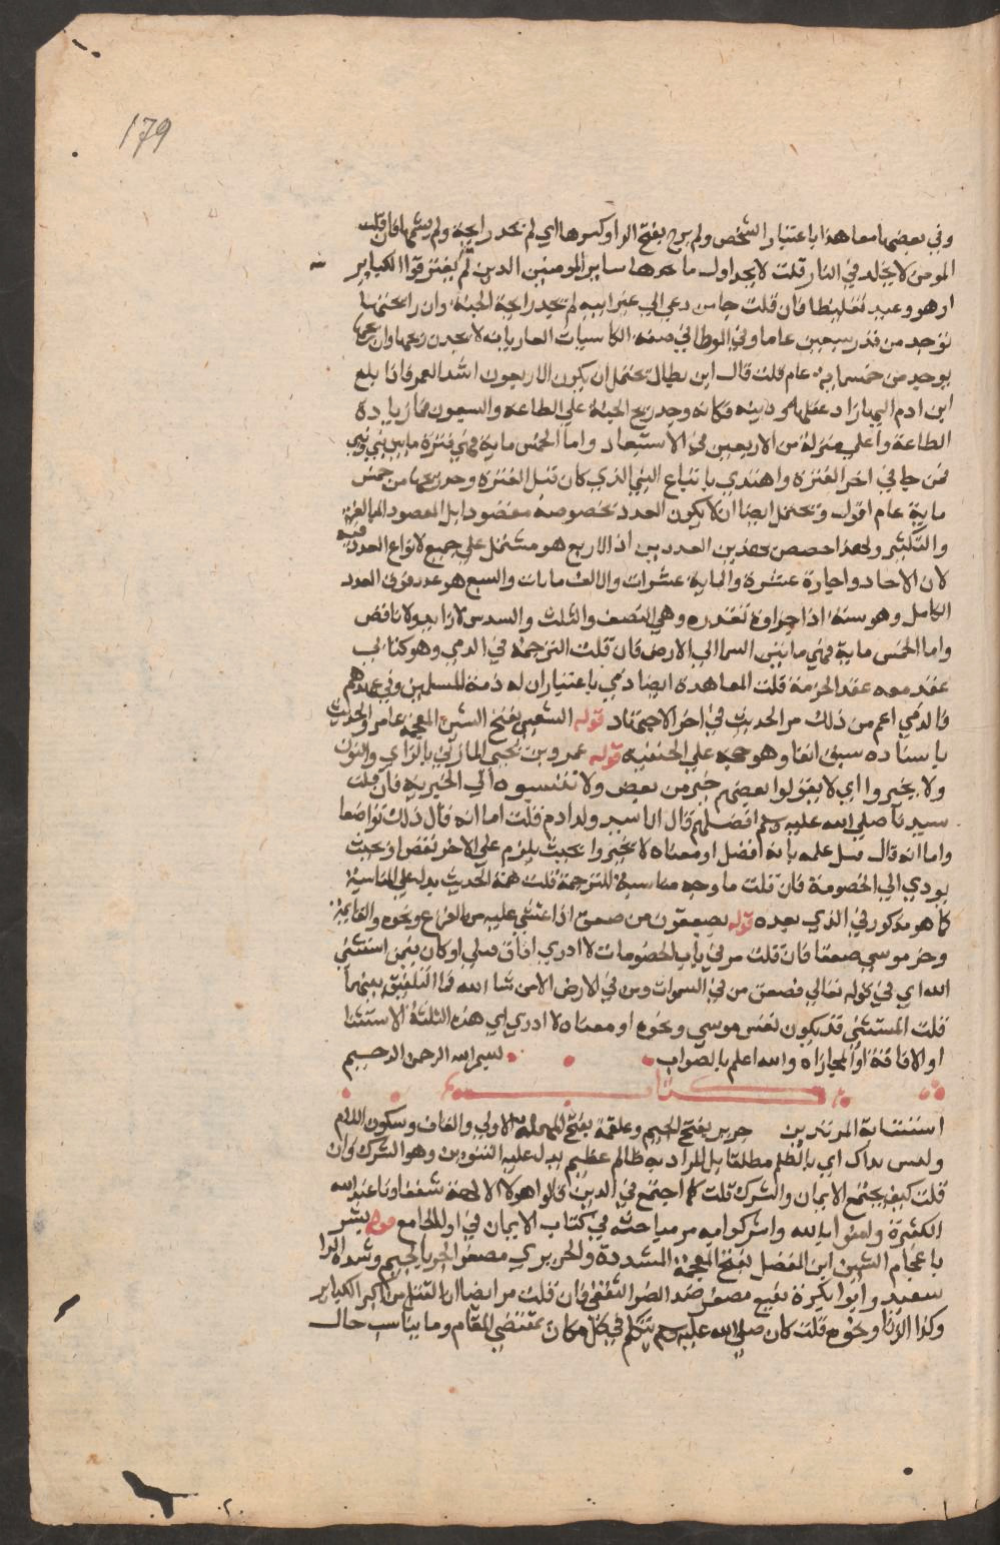 179
وفي بعضها معاهدا باعتبار الشخص ولم يرح بفتح الراء وكسرها اي لم يجد رايحة ولم يشمها فان قلت
المومن لا يخلد في النار قلت لا يجد اول ما يجدها ساير المومنين الذين لم يقترفوا الكباير
او هو وعيد تغليظا فان قلت جا من دعي الي غير ابيه لم يجد رايحة الجنة وان رايحتها
توجد من قدر سبعين عاما وفي الموطا في صفة الكاسيات العاريات لا يجدن ريحها وان ريحها
يوجد من خمسماية عام قلت قال ابن بطال يحتمل ان يكون الاربعون اشد العمر فاذا بلغ
ابن ادم اليها زاد عقله ودينه فكانه وجد ريح الجنة علي الطاعة والسبعون فازيادة
الطاعة واعلي منزلة من الاربعين في الاستبعاد واما الخمس ماية فهي فترة ما بين نبي ونبي
فمن جا في اخر الفترة واهتدي باتباع النبي الذي كان قبل الفترة وجد ريحها من خمس
ماية عام اقول ويحتمل ايضا ان لا يكون العدد بخصوصه مقصودا بل المقصود المبالغة
والتكثير ولهذا خصص هذين العددين اذ الاربع هو مشتمل علي جميع انواع العدد فيه
لان الاحاد واحادة عشرة والماية عشرات والالف مايات والسبع هو عدد فوق العدد
الكامل وهو ستة اذ اجزاوه بقدره وهي النصف والثلث والسدس لا زايد ولا ناقص
واما الخمس ماية فهي ما بين السما الي الارض فان قلت الترجمة في الذمي وهو كتابي
عقد معه عقد الحرمة قلت المعاهدة ايضا ذمي باعتبار ان له ذمة للمسلمين وفي عهدهم
فالذمي اعم من ذلك مر الحديث في اخر الاجتهاد قوله الشعبي بفتح الشين المعجمة عامر والحديث
باسناده سبق انفا وهو حجة علي الحنفية قوله عمرو بن يحيي المازني بالزاي والنون
ولا تخيروا اي لا يقولوا بعضهم خير من بعض ولا تنسبوه الي الخيرية فان قلت
سيدنا صلي الله عليه وسلم افضلهم قال انا سيد ولد ادم قلت اما انه قال ذلك تواضعا
واما انه قال قبل علمه بانه افضل او معناه لا تخيروا بحيث يلزم علي الاخر نقص او بحيث
يودي الي الخصومة فان قلت ما وجه مناسبة للترجمة قلت تتمة الحديث يدل علي المناسبة
كما هو مذكور في الذي بعده قوله يصعقون من صعق اذا غشي عليه من الفزع ونحوه والقايمة
وخر موسي صعقا فان قلت مر في باب الخصومات لا ادري افاق قبلي او كان فيمن استثني
الله اي في قوله تعالي فصعق من في السموات ومن في الارض الا من شا الله فما التلفيق بينهما
قلت المستثني قد يكون نفس موسي ونحوه او معناه لا ادري اي هذه الثلثة الاستثنا
او الافاقة او المجازاه والله اعلم بالصواب بسم الله الرحمن الرحيم
كتاب
استتابة المرتدين جرير بفتح الجيم وعلقمة بفتح المهملة الاولي والقاف وسكون اللام
وليس بذاك اي بالظلم مطلقا بل المراد به ظالم عظيم يدل عليه التنوين وهو الشرك وان
قلت كيف يجتمع الايمان والشرك قلت كما اجتمع في الذين قالوا هولا الالهة شفعاونا عند الله
الكثيرة ولمنوا بالله واشركوا به مر مباحثه في كتاب الايمان في اول الجامع قوله بشر
باعجام الشين ابن المفضل بفتح المعجمة المشددة والجريري مصغر الجر بالجيم وشدة الرا
سعيد وابو بكرة نفيع مصغر ضد الضر الثقفي فان قلت مر ايضا ان القتل من اكبر الكباير
وكذا الزنا ونحوه قلت كان صلي الله عليه وسلم يتكلم في كل مكان بمقتضي المقام وما يناسب حال